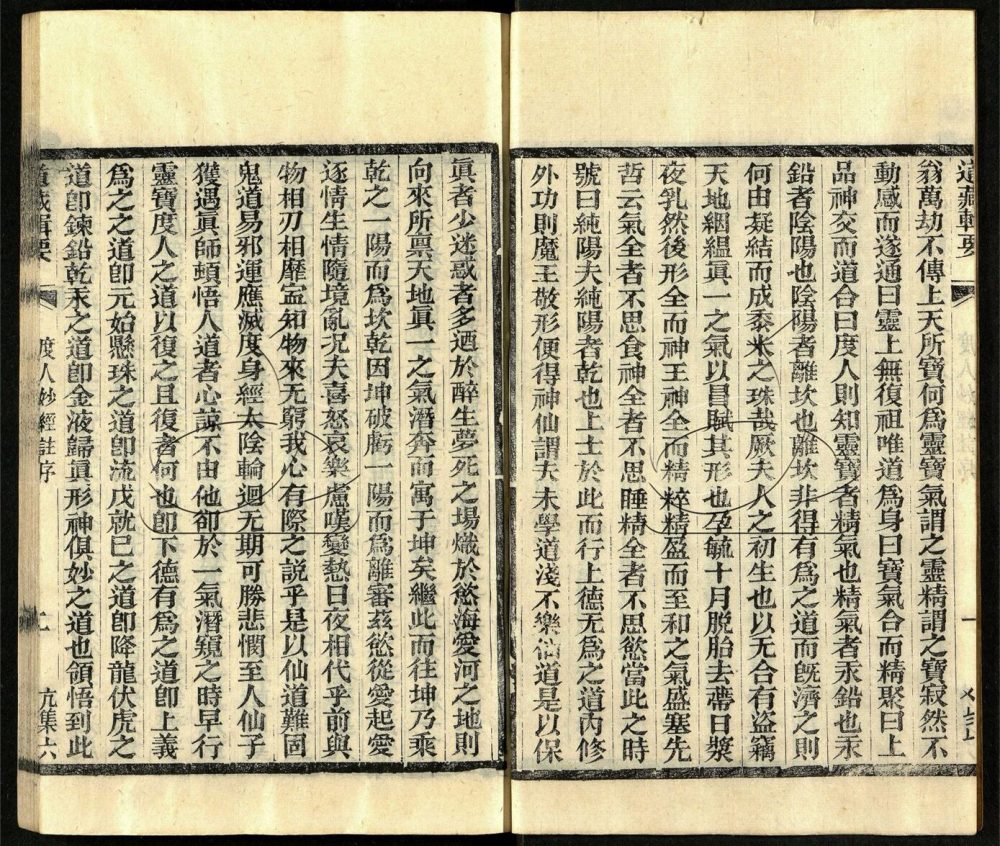 道藏輯要
翁萬劫不傳上天所寶何為靈寶氣謂之靈精謂之寶寂然不
動感而遂通曰靈上無復祖唯道為身曰寶氣合而精聚曰上
品神交而道合曰度人則知靈寶者精氣也精氣者汞鉛也汞
鉛者陰陽也陰陽者離坎也離坎非得有為之道而旣濟之則
何由凝結而成黍米之珠哉厥夫人之初生也以无合有盜竊
天地絪緼眞一之氣以昌賦其形也孕毓十月脫胎去蔕日漿
夜乳然後形全而神王神全而精粹精盈而至和之氣盛塞先
哲云氣全者不思食神全者不思睡精全者不思慾當此之時
號曰純陽夫純陽者乾也上士於此而行上德无為之道內修
外功則魔王敬形便得神仙謂夫未學道淺不樂仙道是以保
眞者少迷惑者多迺於醉生夢死之場熾於慾海愛河之地則
向來所禀天地眞一之氣潛奔而寓于坤矣繼此而往坤乃乘
乾之一陽而為坎乾因坤破虧一陽而為離審玆慾從愛起愛
逐情生情隨境亂况夫喜怒哀樂慮嘆變慹日夜相代乎前與
物相刃相靡寍知物來无窮我心有際之説乎是以仙道難固
鬼道易邪運應滅度身經太陰輪迴无期可勝悲憫至人仙子
獲遇眞師頓悟人道者心諒不由他卻於一氣潛窺之時早行
靈寶度人之道以復之且復者何也卽下德有為之道卽上義
為之之道卽元始懸珠之道卽流戊就巳之道卽降龍伏虎之
道卽鍊鉛乾汞之道卽金液歸眞形神俱妙之道也領悟到此
道藏輯要
度人妙經註序
亢集六